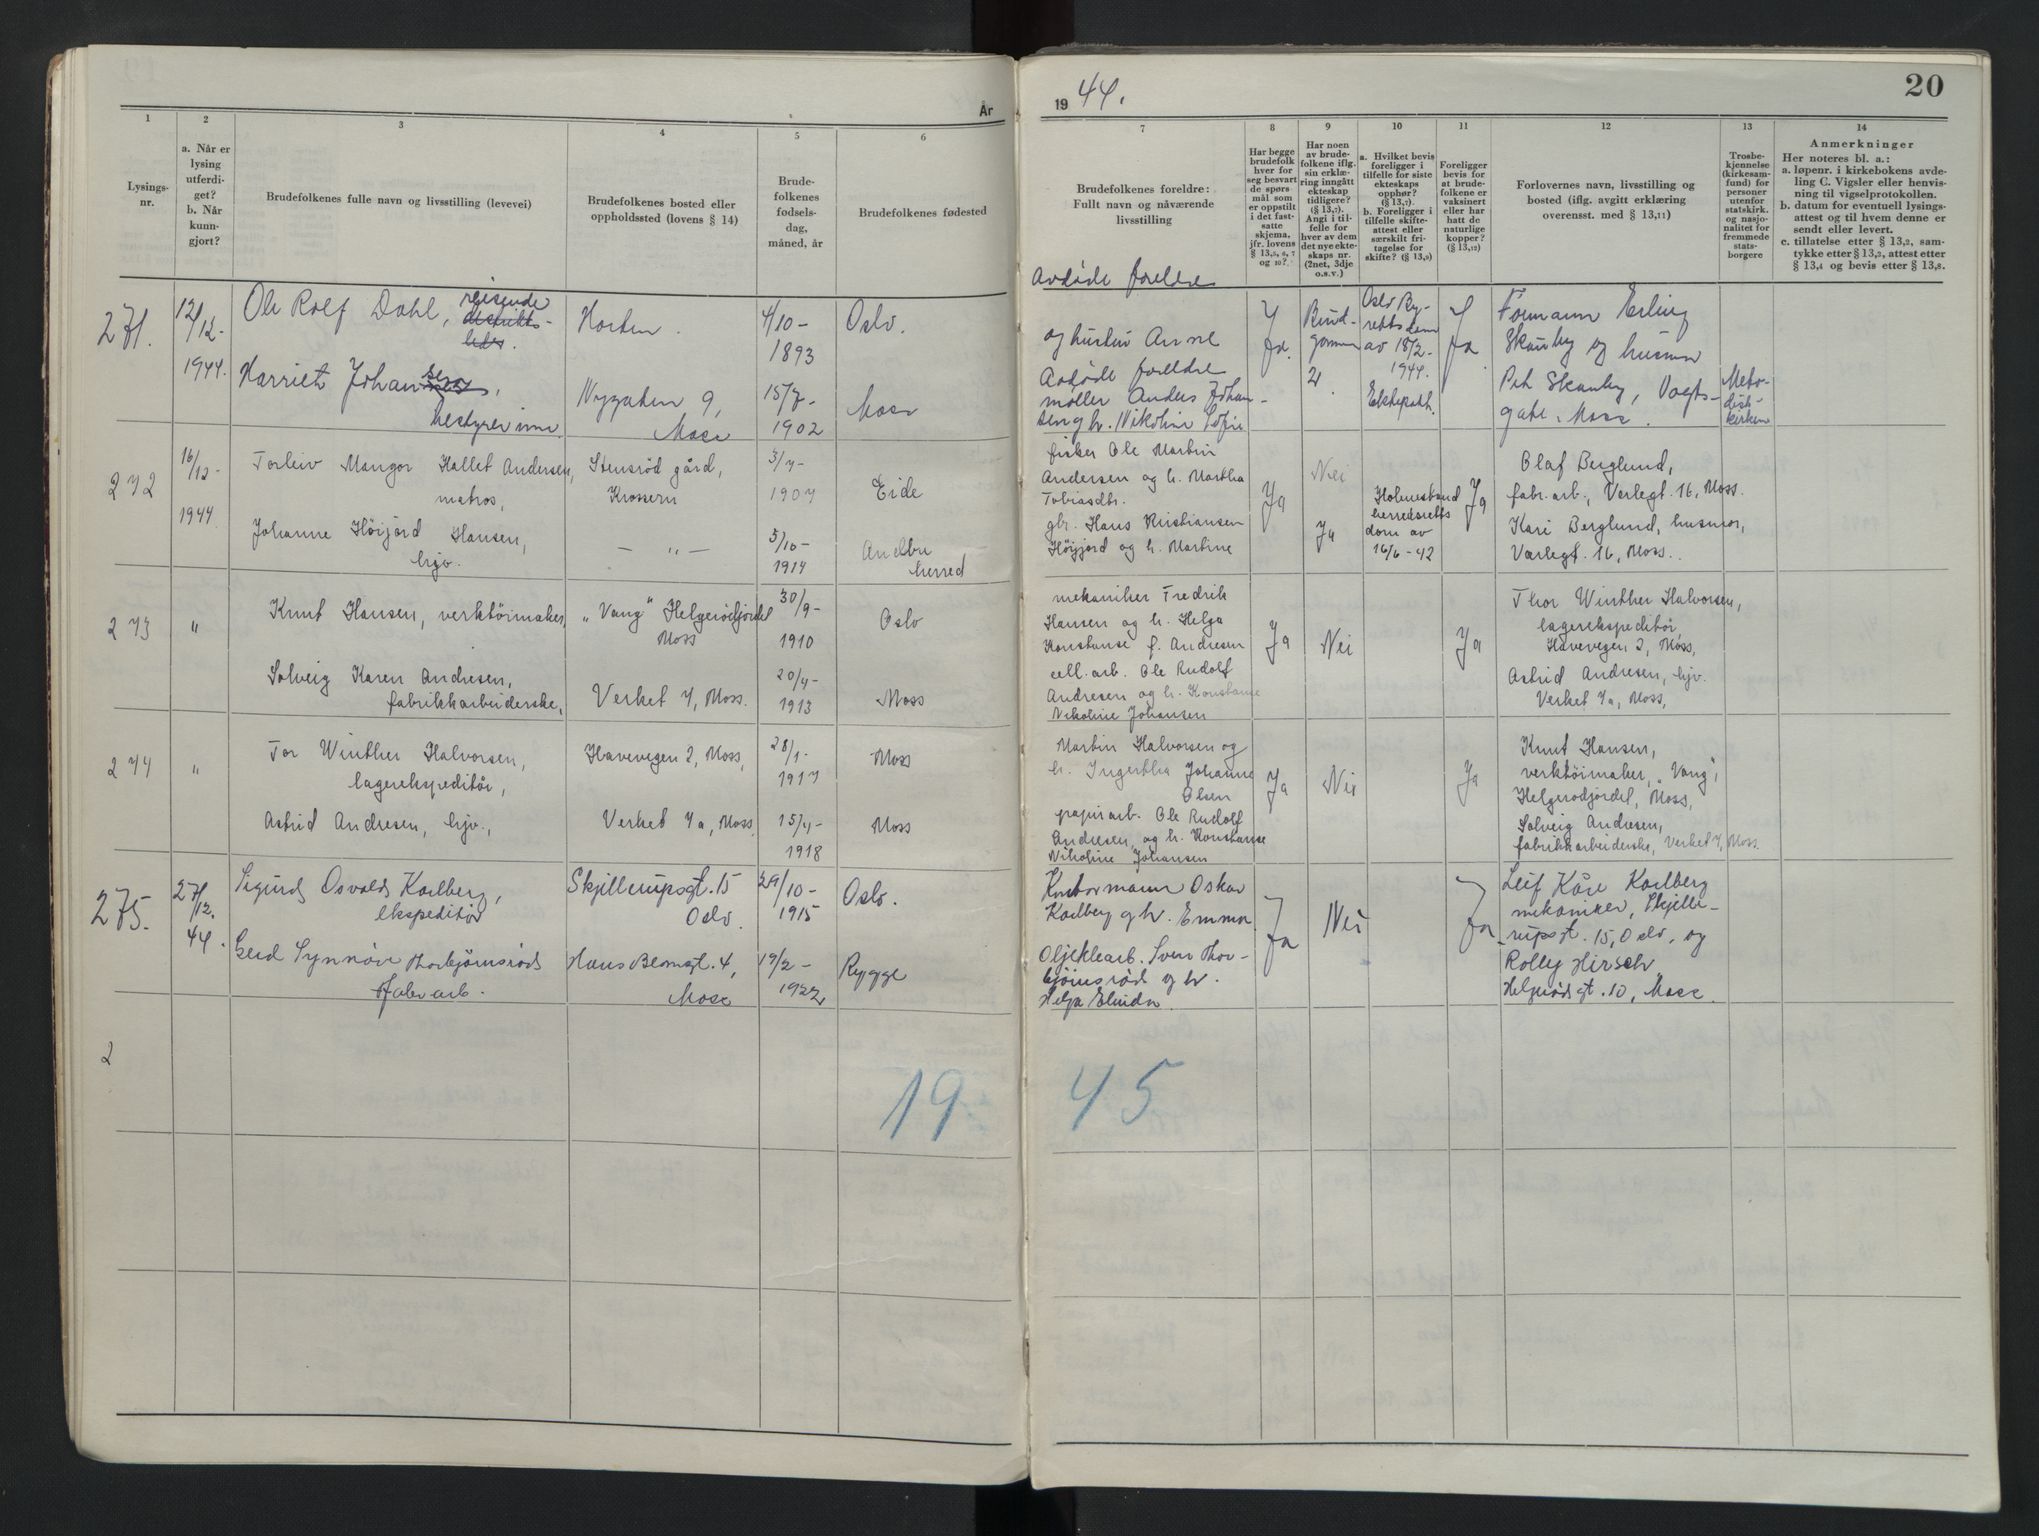 År
1
2
3
4
5
6
Lysings-
nr.
a. Når er
lysing
utferdi-
get?
b. Når
kunn-
gjort?
Brudefolkenes fulle navn og livsstilling (levevei)
Brudefolkenes bosted eller
oppholdssted (lovens § 14)
Brude-
folkenes
fødsels-
dag,
måned, år
Brudefolkenes fødested
271.
12/12-
1944.
Ole Rolf Dahl, reisende
Horten.
4/10-
1893
Oslo.
Harriet Johansen,
bestyrerinne.
Nygaten 9,
Moss
15/7-
1902
Moss
272
16/12-
1944.
Torleiv Mangor Hallet Andersen,
matros,
Stensrød gård,
Krossern
3/7-
1907
Eide
Johanne Höijord Hansen,
hjv.
— " —
5/10-
1914
Andebu
herred
273
"
Knut Hansen, verktöimaker,
"Vang" Helgerødfjordet
Moss
30/9-
1910
Oslo
Solveig Karen Andresen,
fabrikkarbeiderske,
Verket 7, Moss.
20/4-
1913
Moss
274
"
Tor Winther Halvorsen,
lagerekspeditør,
Havevegen 2, Moss,
28/1-
1917
Moss
Astrid Andresen, hjv.,
Verket 7a, Moss,
15/4-
1918
Moss
275.
27/12.
44.
Sigurd Osvald Karlberg,
ekspeditör
Skjellerupsgt. 15
Oslo.
29/10-
1915
Oslo.
Gerd Synnöve Thorbjörnsröd
fabr.arb.
Hans Blomsgt. 4,
Moss
19/2-
1922
Rygge
2
19
19 44.
20
7
8
9
10
11
12
13
14
Brudefolkenes foreldre:
Fullt navn og nåværende
livsstilling
Har begge
brudefolk
hver for
seg besvart
de spørs-
mål som
er oppstilt
i det fast-
satte
skjema,
jfr. lovens
§ 13,5, 6, 7
og 10?
Har noen
av brude-
folkene iflg.
sin erklæ-
ring inngått
ekteskap
tidligere?
(§ 13,7).
Angi i til-
felle for
hver av dem
det nye ekte-
skaps nr.
(2net, 3dje
o.s.v.)
a. Hvilket bevis
foreligger i
tilfelle for siste
ekteskaps
opphør?
(§ 13,7).
b. Foreligger i
tilfelle skifte-
attest eller
særskilt fri-
tagelse for
skifte? (§ 13,9)
Foreligger
bevis for
at brude-
folkene er
vaksinert
eller har
hatt de
naturlige
kopper?
(§ 13,12)
Forlovernes navn, livsstilling og
bosted (iflg. avgitt erklæring
overensst. med § 13,11)
Trosbe-
kjennelse
(kirkesam-
fund) for
personer
utenfor
statskirk.
og nasjo-
nalitet for
fremmede
stats-
borgere
Anmerkninger
Her noteres bl. a.:
a. løpenr. i kirkebokens avde-
ling C. Vigsler eller henvis-
ning til vigselprotokollen.
b. datum for eventuell lysings-
attest og til hvem denne er
sendt eller levert.
c. tillatelse etter § 13,2, sam-
tykke etter § 13,3, attest etter
§ 13,4 og bevis etter § 13,8.
Avdøde foreldre
og hustru Anne
Avdøde foreldre
møller Anders Johan-
sen og h. Nikoline Sofie
Ja.
Brud-
gommen
2.
Oslo By-
rettsdom
av 18/2-
1944.
Ektepakt.
Ja
Formann Erling
Skauby og husmor
Skauby, Vogts-
gate. Moss.
Meto-
dist-
kirken
fisker Ole Martin
Andersen og h. Martha
Tobiasdtr.
gbr. Hans Kristiansen
Höijord og h. Martine
Ja
Nei
Ja
Holmestrand
herredsretts
dom av
16/6-42
Ja
Olaf Berglund,
fabr.arb., Varlegt. 16, Moss.
Kari Berglund, husmor,
Varlegt. 16, Moss.
mekaniker Fredrik
Hansen og h. Helga
Konstanse f. Andresen
cell. arb. Ole Rudolf
Andresen og h. Konstanse
Nikoline Johansen
Ja
Nei
Ja
Thor Winther Halvorsen,
lagerekspeditør,
Havevegen 2, Moss,
Astrid Andresen, hjv.
Verket 7a, Moss,
Martin Halvorsen og
h. Ingertha Johanne
Olsen
papirarb. Ole Rudolf
Andresen, og h. Konstanse
Nikoline Johansen
Ja
Nei
Ja
Knut Hansen,
verktöimaker, "Vang",
Helgerødfjordet, Moss,
Solveig Andresen,
fabrikkarbeiderske, Verket 7, Moss.
Kontormann Oskar
Karlberg og h. Emma
Oljeklearb. Sven Thor-
björnsröd og h.
Helga Elinda.
Ja
Nei
Ja
Leif Kåre Karlberg
mekaniker, Skjelle-
rupsgt. 15, Oslo, og
Rolly Hirsch
Helgerödsgt. 10, Moss.
45